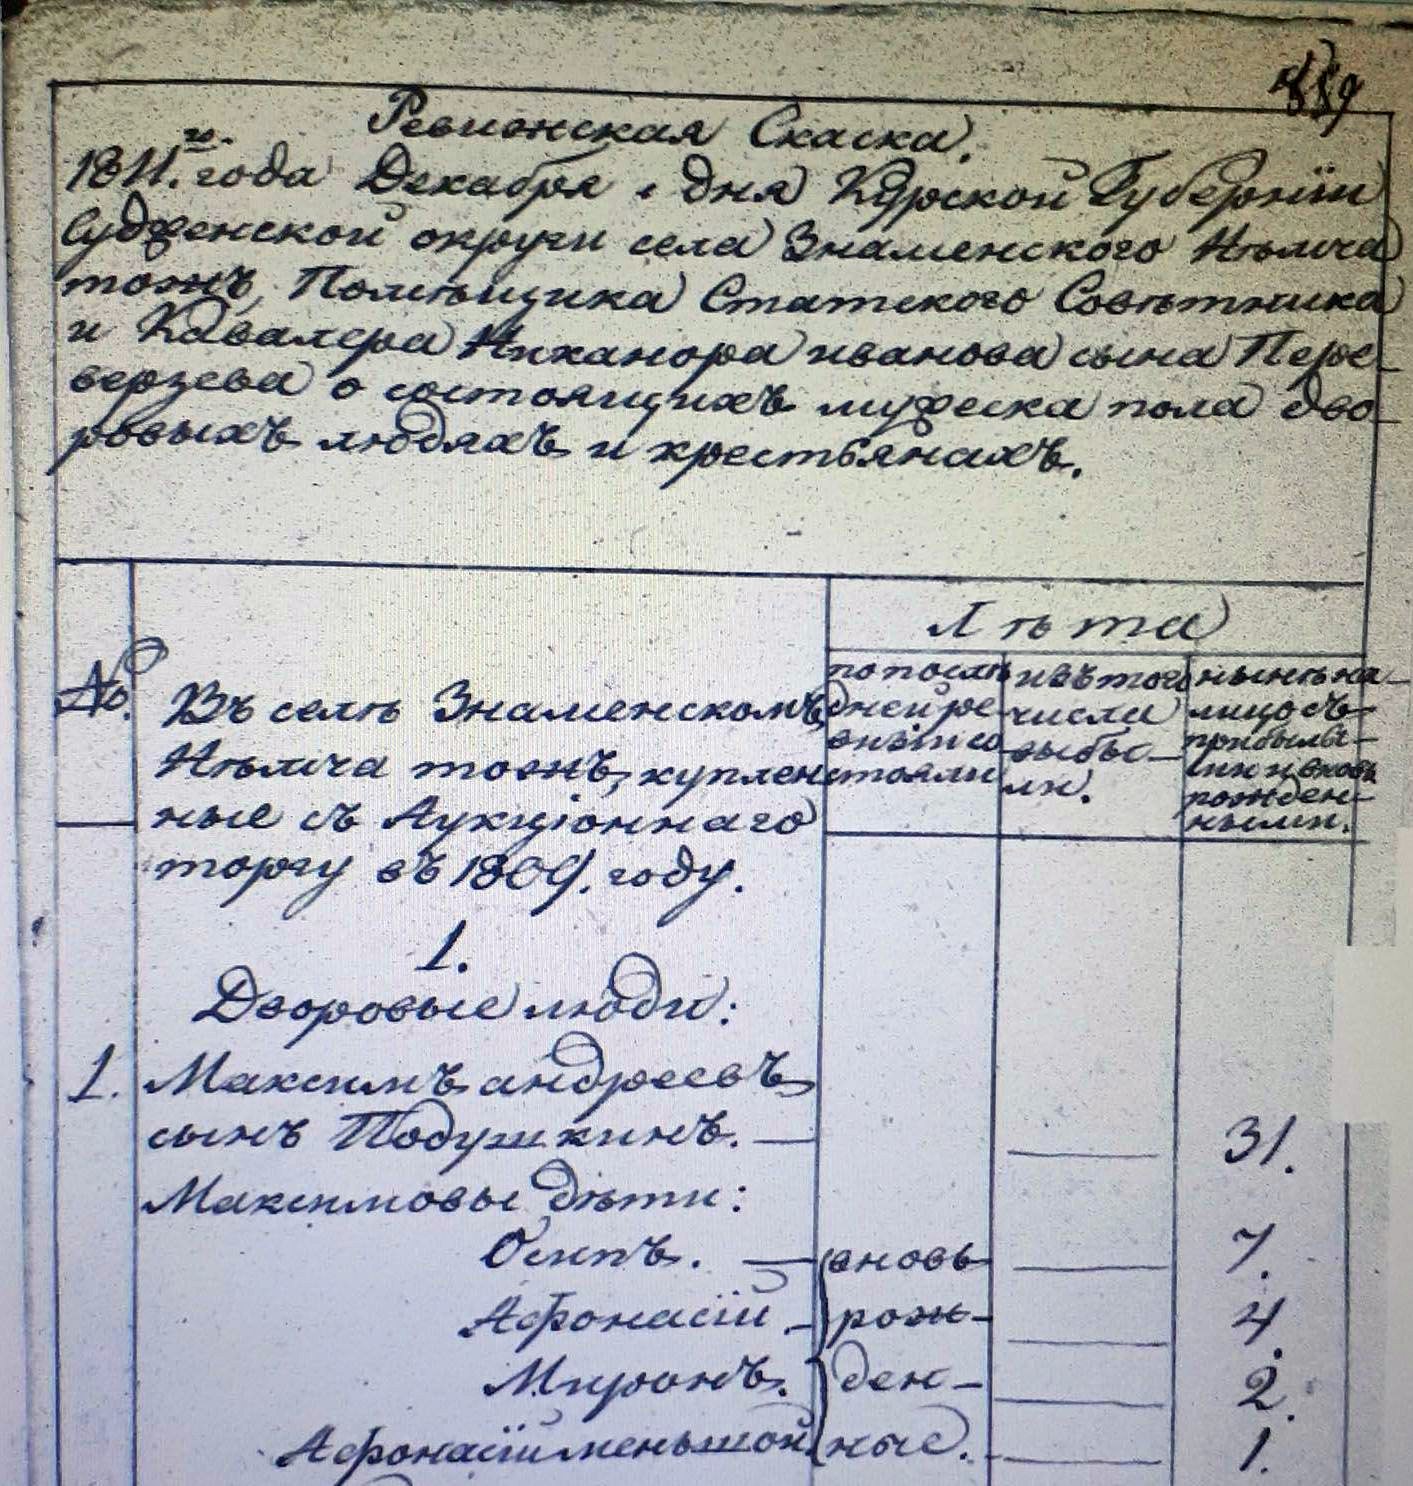 889
Ревизская Скаска.
1811.го года Декабря дня Курской Губернiи
Судженской округи села Знаменского Нѣмча
тожъ, Помѣщика Статского Совѣтника
и Кавалера Никанора иванова сына Пере-
верзева о состоящихъ мужеска пола дво-
ровыхъ людяхъ и крестьянахъ.
Лѣта
№.
Въ селѣ Знаменскомъ
Нѣмча тожъ, куплен
ные съ Аукцiоннаго
торгу въ 1809. году.
по послѣ
дней ре
визiи со
стояли
изъ того
числа
выбы-
ли.
нынѣ на-
лицо съ
прибылы-
ми и вновь
рожден-
ными.
1.
Дворовые люди:
1. Максимъ андреевъ
сынъ Подушкинъ. — — 31.
Максимовы дѣти:
Осипъ. — вновь — 7.
Афонасiй. — рож- — 4.
Миронъ. ден- — 2.
Афонасiй меньшой. ные. — 1.